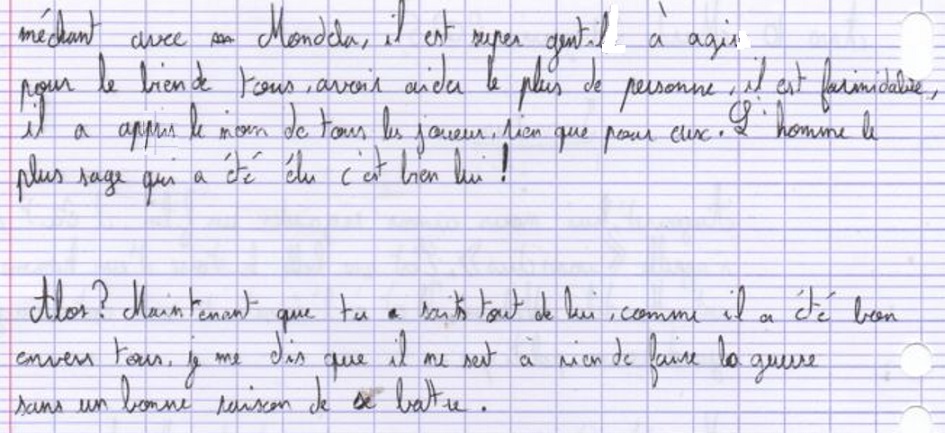 méchant avec Mondela, il est super gentil à agir
pour le bien de tous, avoir aider le plus de personne, il est farimidable,
il a appris le nom de tous les joueur, rien que pour eux. L'homme le
plus sage qui a été élu c'est bien lui !
Alos? Maintenant que tu sais tout de lui, comme il a été bon
envers tous, je me dis que il ne sert à rien de faire la guerre
sans un bonne raison de se battre.